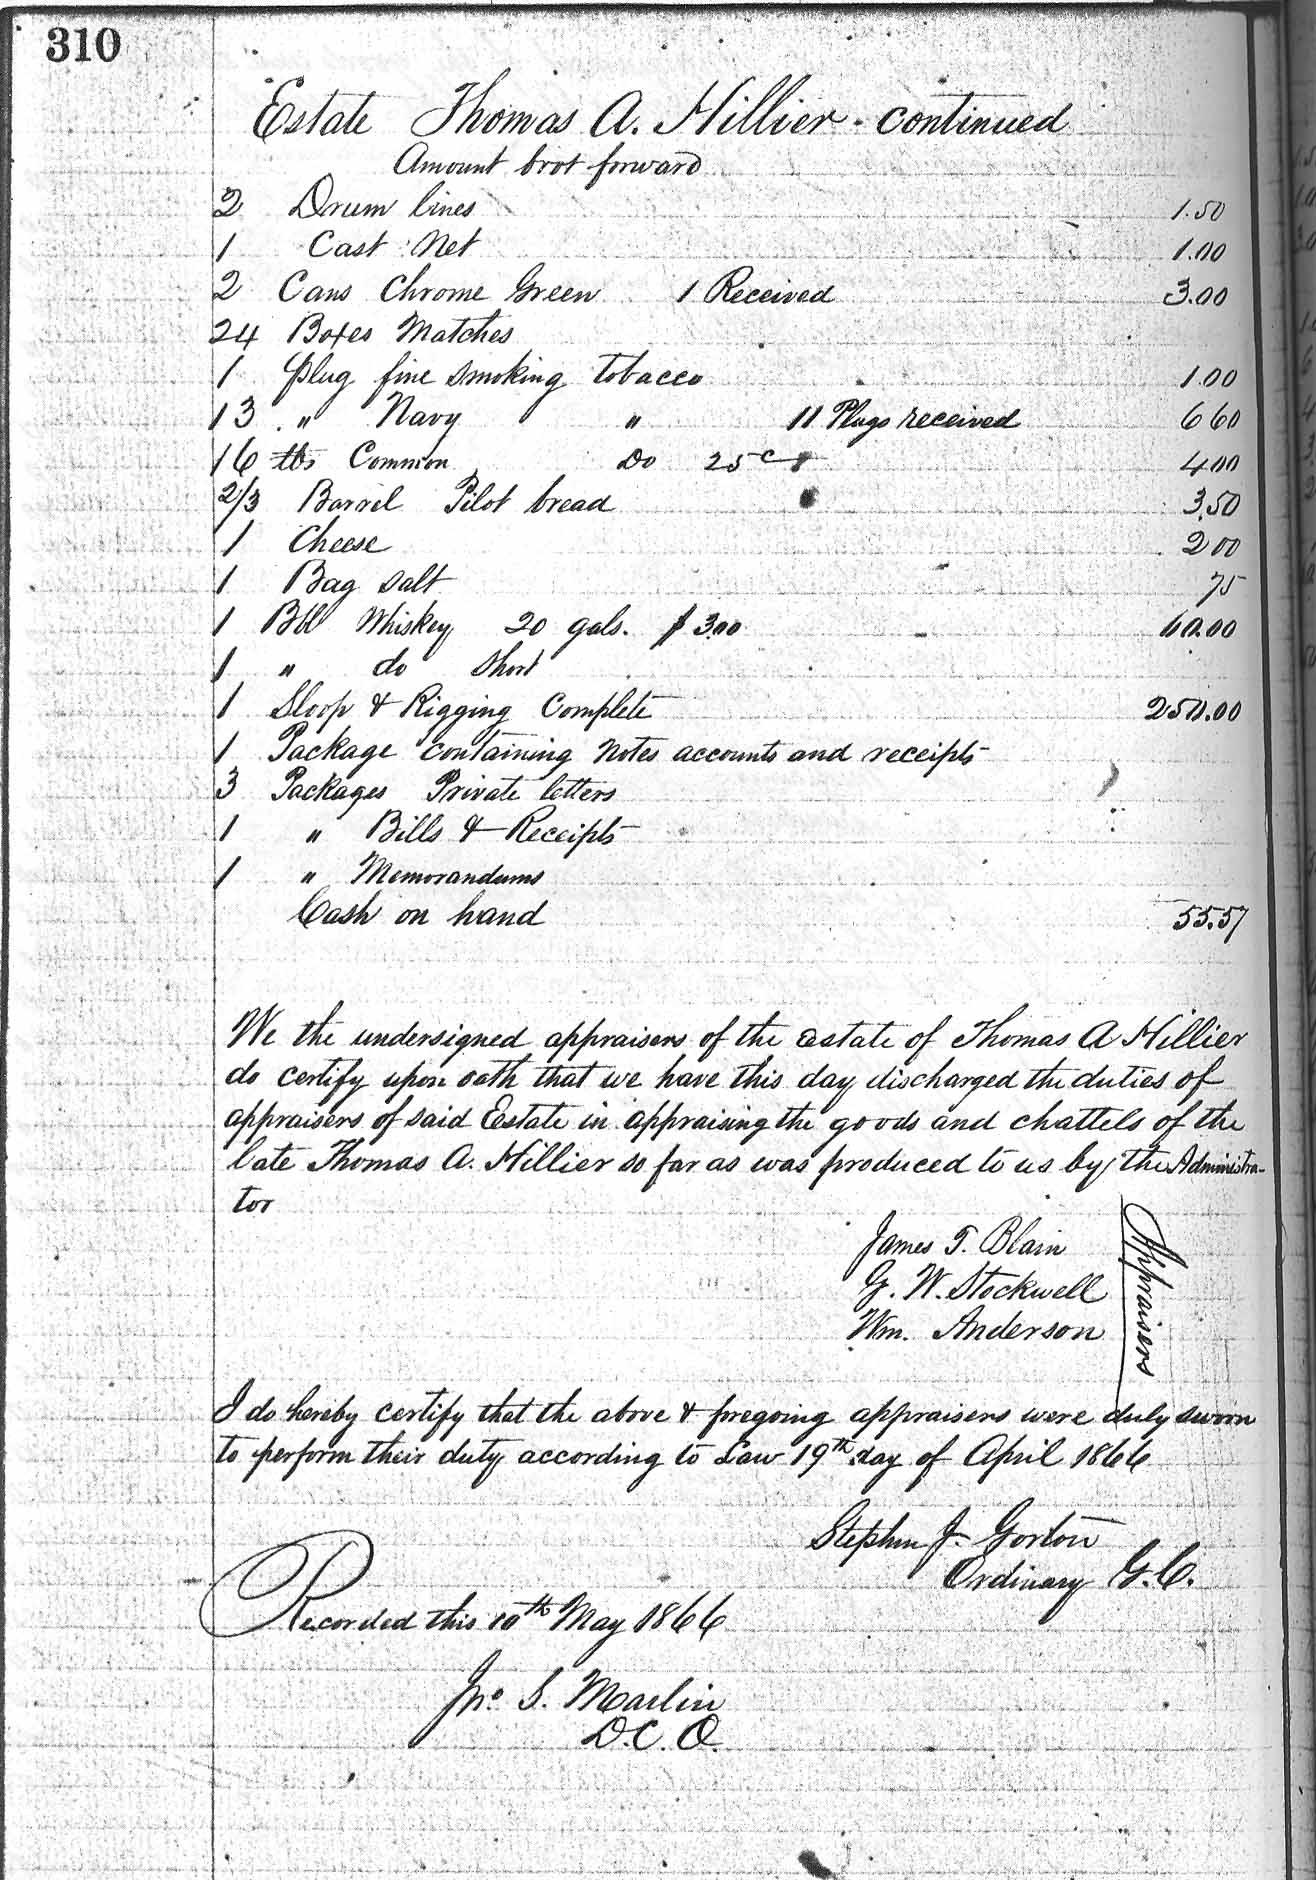 310
Estate Thomas A. Hillier - continued
Amount brot forward
2 Drum lines 1.50
1 Cast Net 1.00
2 Cans Chrome Green 1 Received 3.00
24 Boxes Matches
1 Plug fine smoking tobacco 1.00
13 " Navy " 11 Plugs received 6 60
16 lbs Common Do 25c 4.00
2/3 Barrel Pilot bread 3.50
1 Cheese 2 00
1 Bag salt 75
1 Bbl Whiskey 20 gals. $ 3.00 60.00
1 " do short
1 Sloop & Rigging Complete 250.00
1 Package containing notes accounts and receipts
3 Packages Private letters
1 " Bills & Receipts
1 " Memorandums
Cash on hand 55.57
We the undersigned appraisers of the estate of Thomas A Hillier
do certify upon oath that we have this day discharged the duties of
appraisers of said Estate in appraising the goods and chattels of the
late Thomas A. Hillier so far as was produced to us by the Administra-
tor
James T. Blain
G. W. Stockwell
Wm. Anderson
Appraisers
I do hereby certify that the above & foregoing appraisers were duly sworn
to perform their duty according to Law 19th day of April 1866
Stephen J. Gorton
Ordinary G.C.
Recorded this 10th May 1866
Jno S. Marlin
D.C.O.